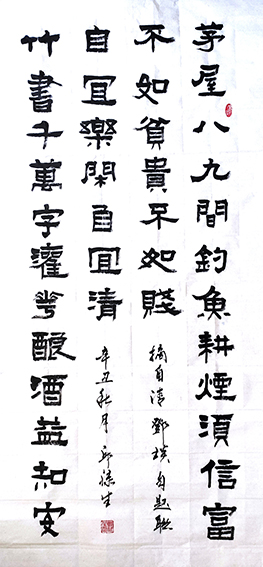 茅屋八九間釣魚耕煙須信富
不如貧貴不如賤
摘自清鄧琰自題聯
竹書千萬字灌花釀酒益知安
自冝樂閑自冝清
辛丑秋月邱生